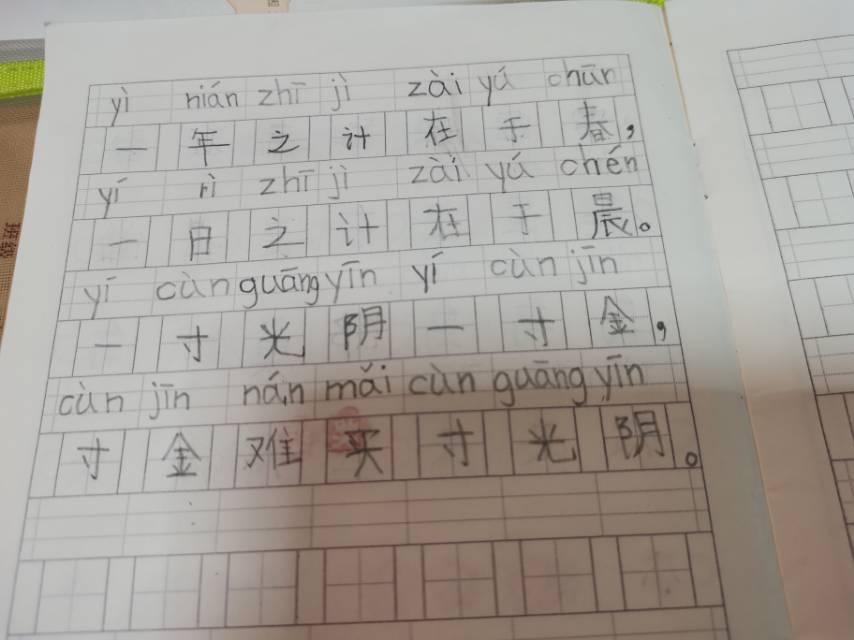 yì nián zhī jì zài yú chūn
一年之计在于春，
yí rì zhī jì zài yú chén
一日之计在于晨。
yí cùn guāng yīn yí cùn jīn
一寸光阴一寸金，
cùn jīn nán mǎi cùn guāng yīn
寸金难买寸光阴。
班级